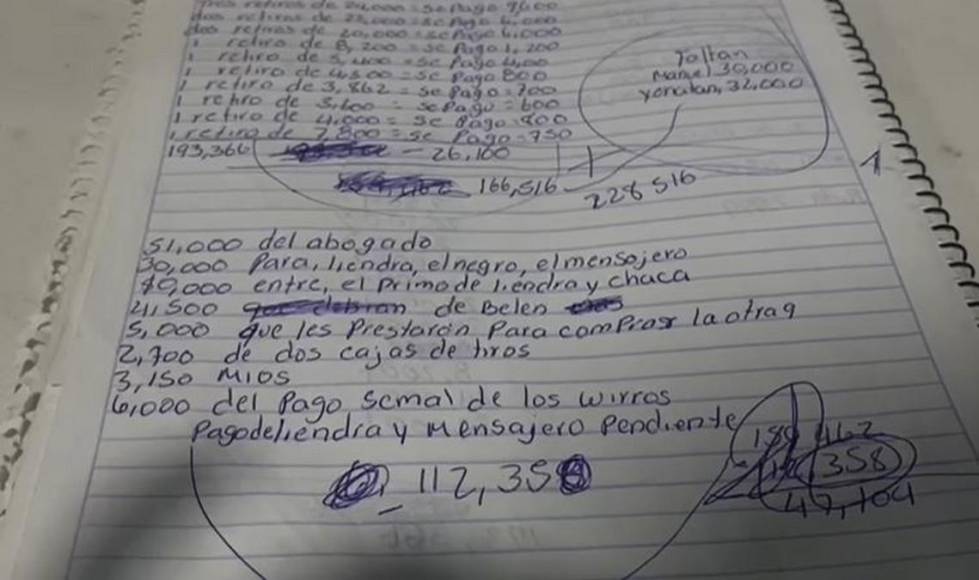 tres retiros de 24,000 = se Pago 7,600
dos retiros de 22,000 = se Pago 6,000
dos retiros de 20,000 = se Pago 6,000
1 retiro de 8,200 = se Pago 1,200
1 retiro de 5,400 = se Pago
1 retiro de 4,500 = se Pago 800
1 retiro de 3,862 = se Pago = 700
1 retiro de 3,600 = se Pago = 600
1 retiro de 4,000 = se Pago = 800
1 retiro de 2,800 = se Pago = 750
193,366 - 26,100
166,516
Manuel 30,000
yonatan, 32,000
228 516
1
51,000 del abogado
30,000 Para, liendra, el negro, el mensajero
entre, el Primo de liendra y chaca
de Belen
5,000 que les Prestaron Para comprar la otra 9
2,700 de dos cajas de tiros
3,150 MIOS
6,000 del Pago Semal de los wirros
Pago de liendra y Mensajero Pendiente
- 112,358
462
358
47,104